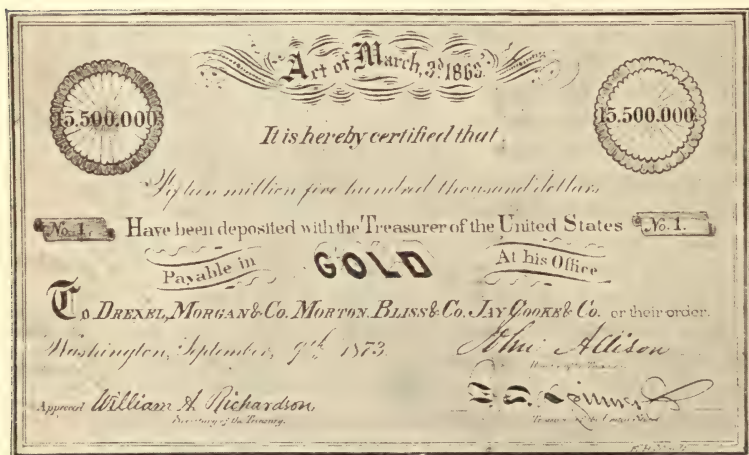 Act of March, 3d. 1863.
15.500.000. 15.500.000.
It is hereby certified that
Fifteen million five hundred thousand dollars
No. 1. Have been deposited with the Treasurer of the United States No. 1.
Payable in GOLD At his Office
To DREXEL, MORGAN & CO. MORTON, BLISS & CO. JAY COOKE & CO. or their order.
Washington, September, 9th 1873. John Allison
Approved William A. Richardson
Secretary of the Treasury.